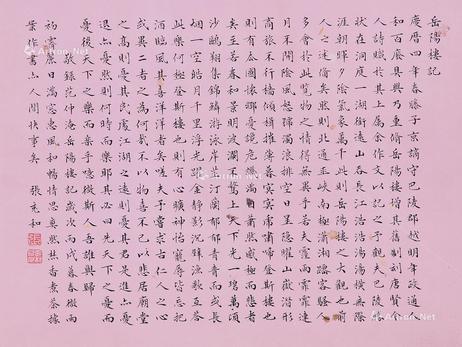 岳陽樓記
慶曆四年春滕子京謫守巴陵郡越明年政通人
和百廢具興乃重脩岳陽樓增其舊制刻唐賢今
人詩賦於其上屬余作文以記之予觀夫巴陵勝
狀在洞庭一湖銜遠山吞長江浩浩湯湯橫無際
涯朝暉夕陰氣象萬千此則岳陽樓之大觀也前
人之述備矣然則北通巫峽南極瀟湘遷客騷人
多會於此覽物之情得無異乎若夫霪雨霏霏連
月不開陰風怒號濁浪排空日星隱曜山嶽潛形
商旅不行檣傾楫摧薄暮冥冥虎嘯猿啼登斯樓也
則有去國懷鄉憂讒畏譏滿目蕭然感極而悲者
矣至若春和景明波瀾不驚上下天光一碧萬頃
沙鷗翔集錦鱗游泳岸芷汀蘭郁郁青青而或長
烟一空皓月千里浮光躍金靜影沉璧漁歌互答
此樂何極登斯樓也則有心曠神怡寵辱皆忘把
酒臨風其喜洋洋者矣嗟夫予嘗求古仁人之心
或異二者之為何哉不以物喜不以己悲居廟堂
之高則憂其民處江湖之遠則憂其君是進亦憂
退亦憂然則何時而樂耶其必曰先天下之憂而
憂後天下之樂而樂乎噫微斯人吾誰與歸
敬錄范仲淹岳陽樓記歲次丙戌暮春微雨
初霽日滿窗惠風和暢情思然焚香煮茶據
案作書亦人間快事矣 張充和